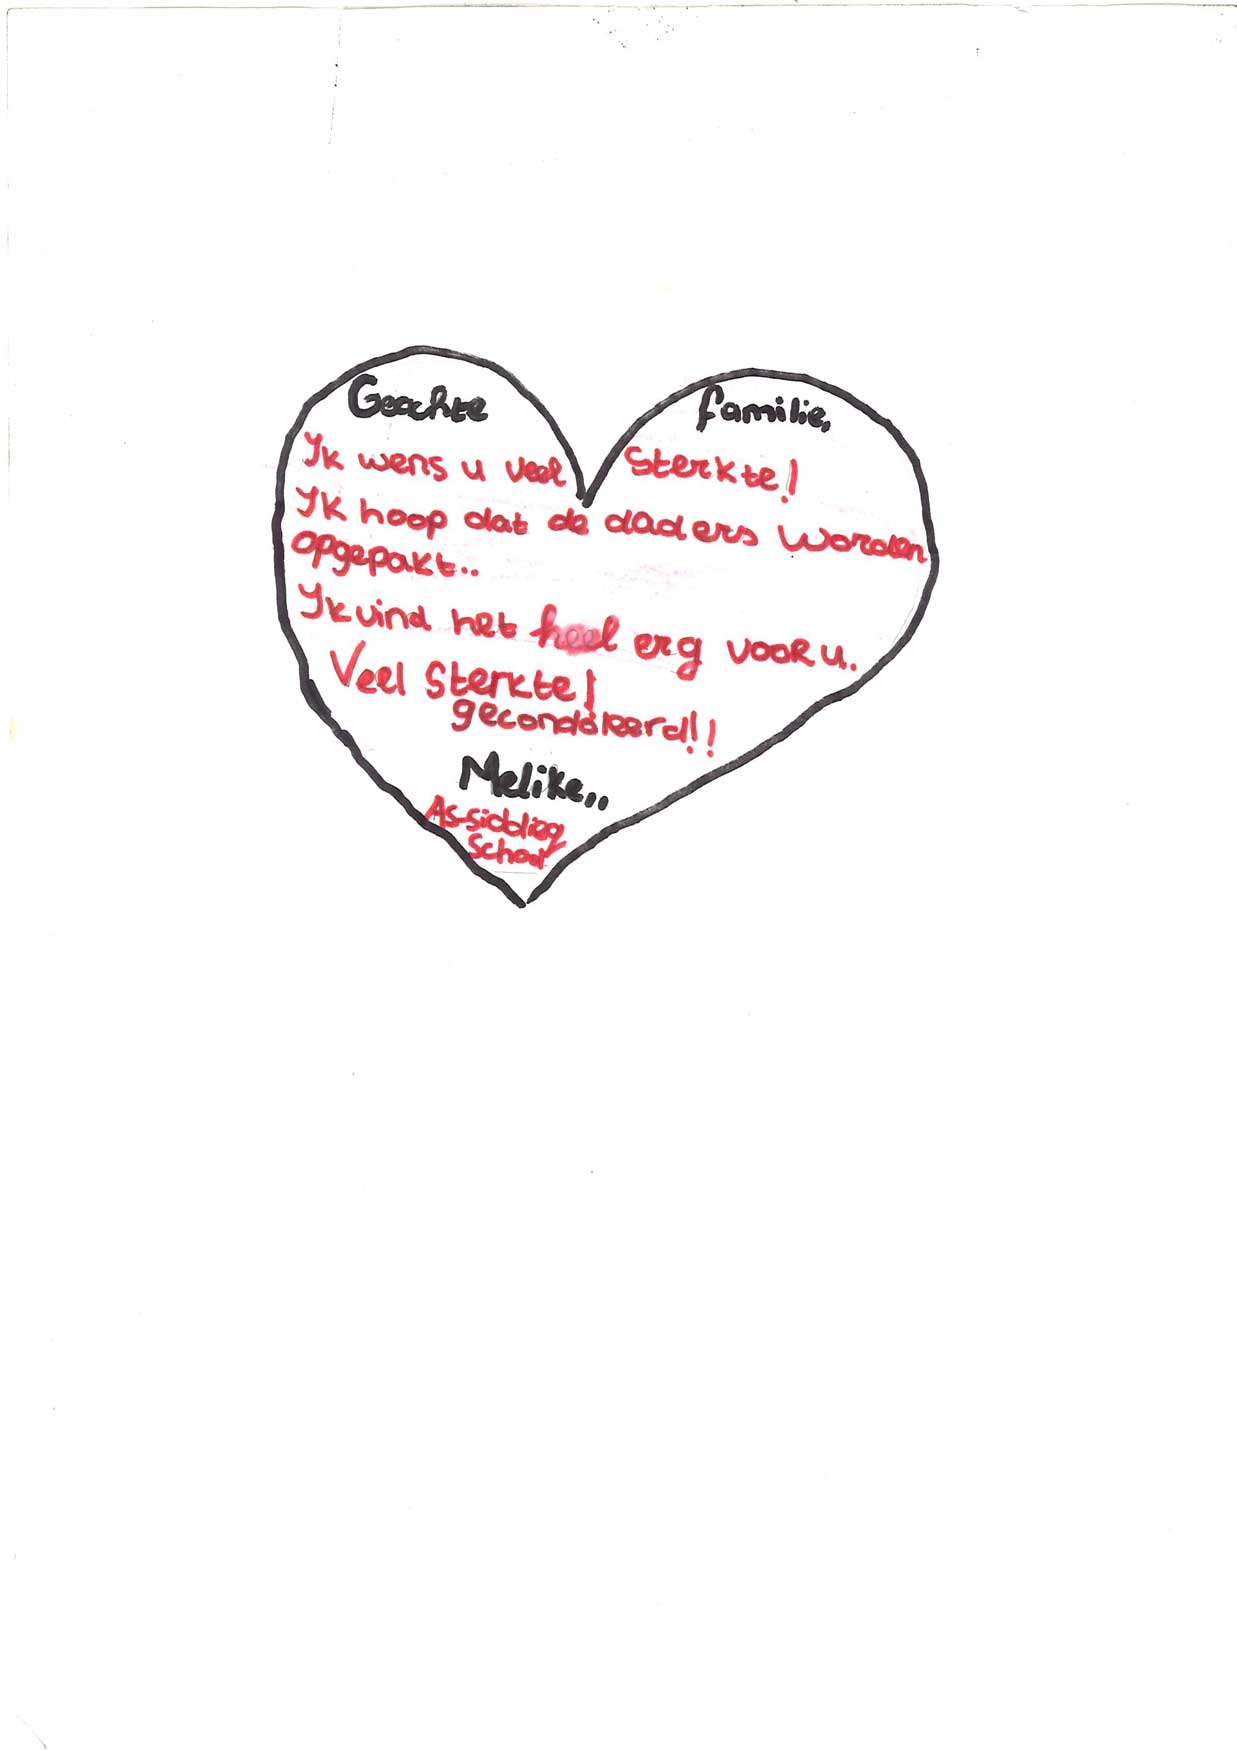 Geachte familie,
Ik wens u veel sterkte!
Ik hoop dat de daders worden
opgepakt..
Ik vind het heel erg voor u.
Veel sterkte!
gecondoleerd!!
Melike..
As-siddieq
School